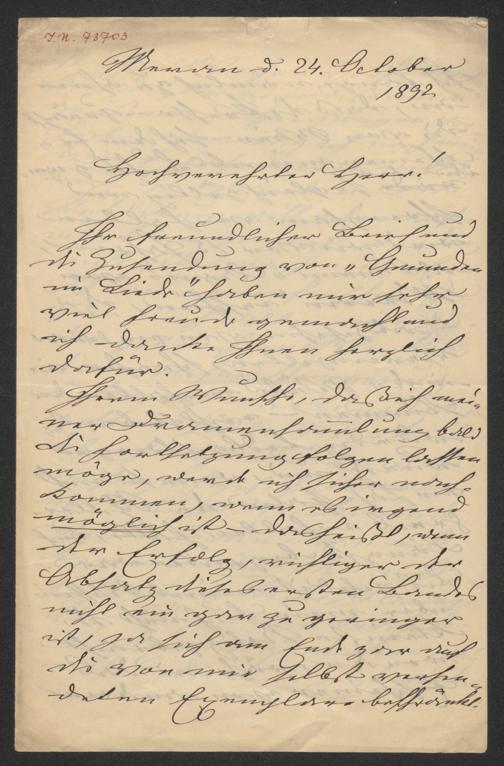 I.N. 78703
Meran d. 24. October
1892
Hochverehrter Herr!
Ihr freundlicher Brief und
die Zusendung von „Gmunden
im Liede" haben mir sehr
viel Freude gemacht und
ich danke Ihnen herzlich
dafür.
Ihrem Wunsche, daß ich mei-
ner Dramensammlung bald
die Fortsetzung folgen lassen
möge, werde ich sicher nach-
kommen, wenn es irgend
möglich ist – das heißt, wenn
der Erfolg, richtiger der
Absatz dieses ersten Bandes
nicht ein gar zu geringer
ist, ja sich am Ende gar auf
die von mir selbst versen-
deten Exemplare beschränkt.